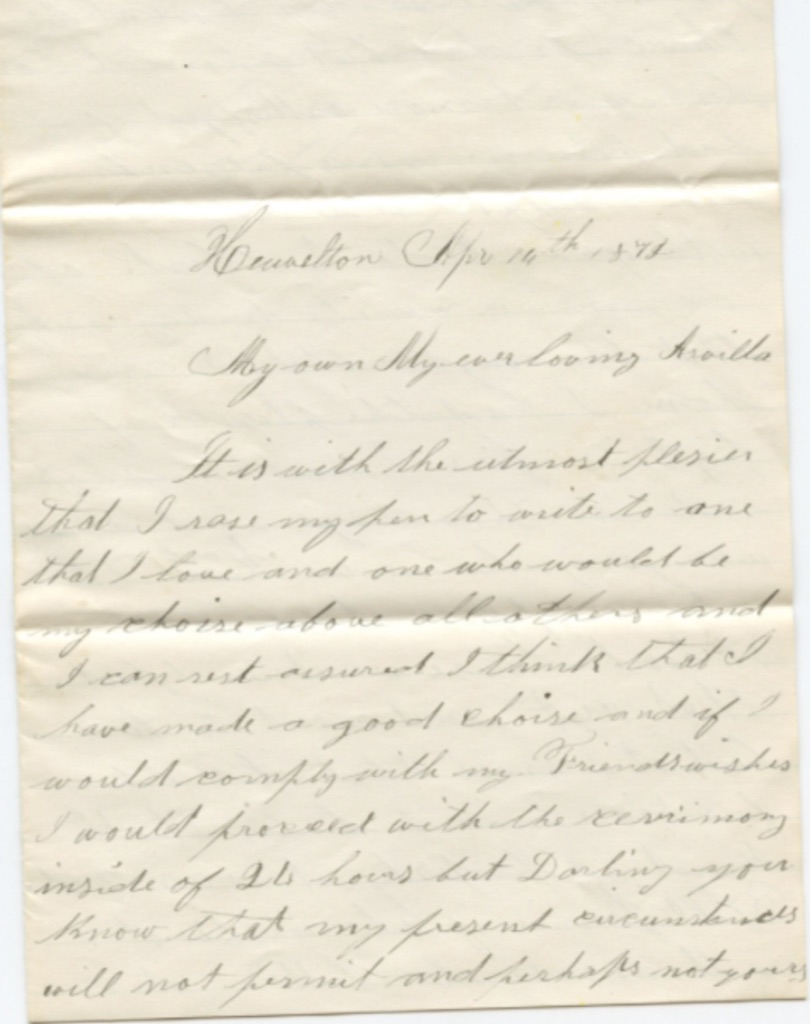 Heuvelton Apr 14th 1871
My own My ever loving Arvilla
It is with the utmost plesier
that I rase my pen to write to one
that I love and one who would be
my choise above all others and
I can rest assured I think that I
have made a good choise and if I
would comply with my Friends wishes
I would proceed with the cerrimony
inside of 24 hours but Darling you
know that my present circumstances
will not permit and perhaps not yours